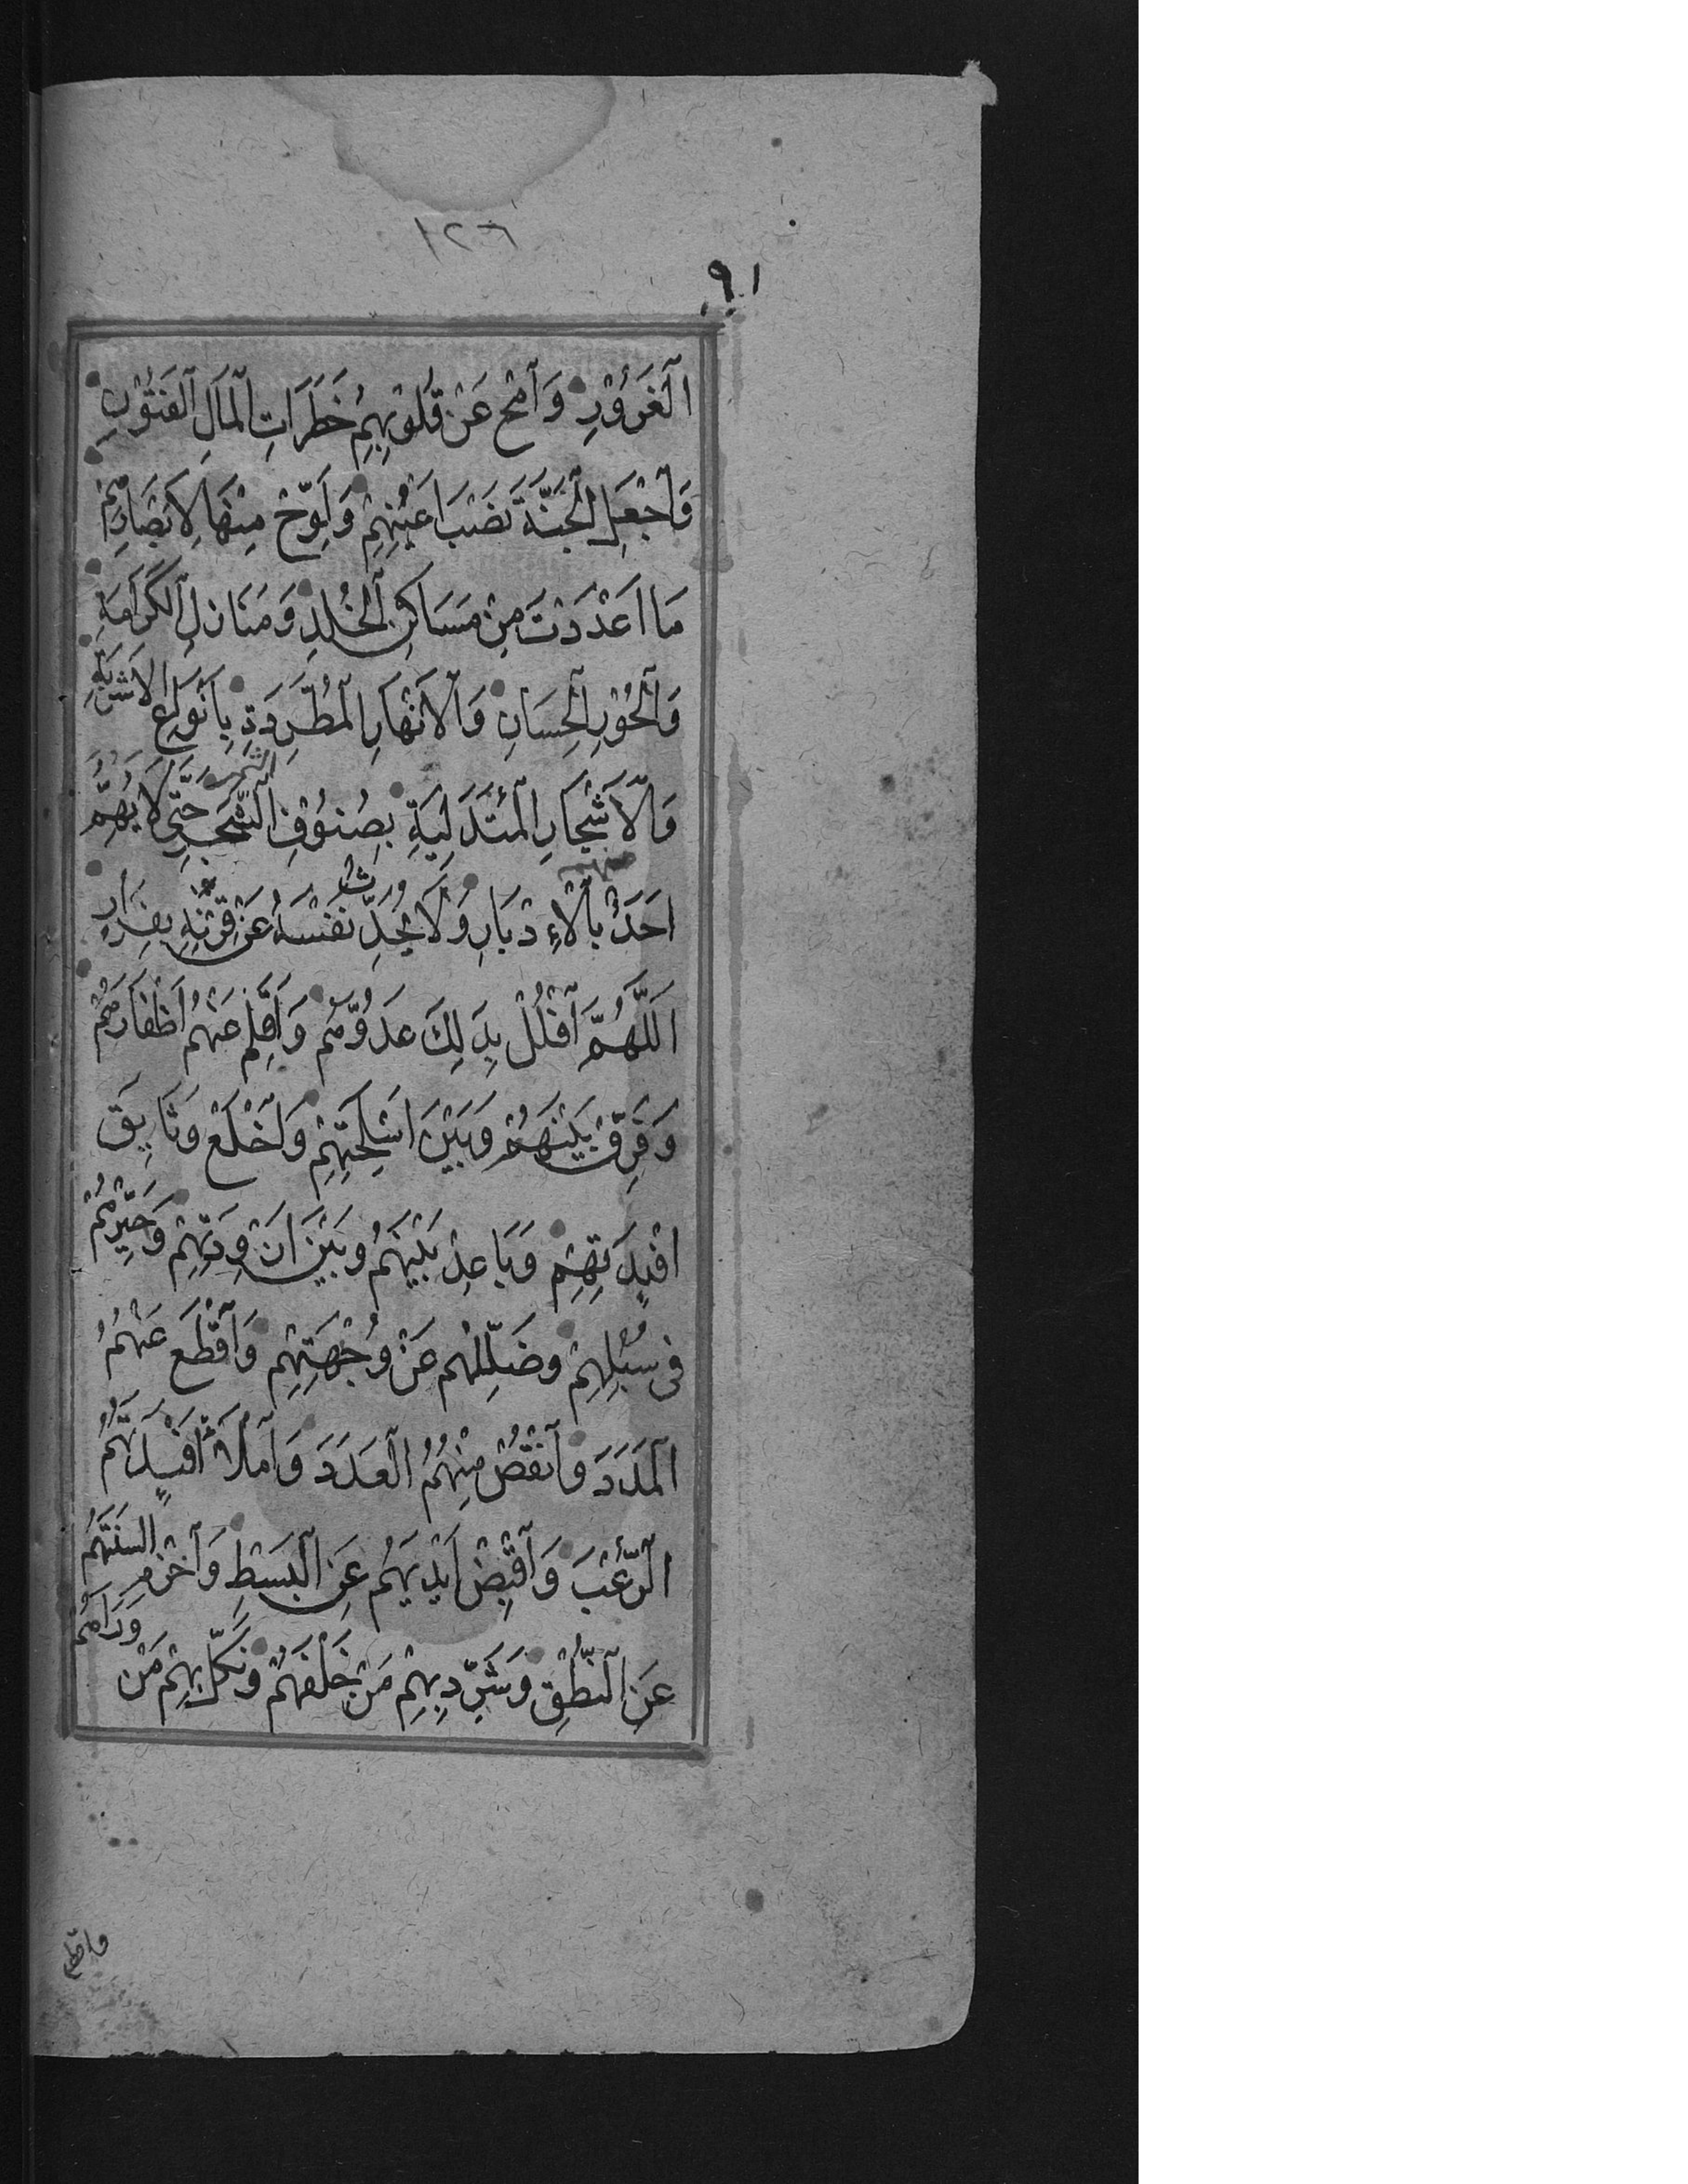 ١٢٦
٩١
الْغَرُوْرِ وَامْحُ عَنْ قُلُوْبِهِمْ خَطَرَاتِ الْمَالِ الْفَتُوْنِ
وَاجْعَلِ الْجَنَّةَ نَصْبَ اَعْيُنِهِمْ وَلَوِّحْ مِنْهَا لِاَبْصَارِهِمْ
مَا اَعْدَدْتَ مِنْ مَسَاكِنِ الْخُلْدِ وَمَنَازِلِ الْكَرَامَةِ
وَالْحُوْرِ الْحِسَانِ وَالْاَنْهَارِ الْمُطَّرِدَةِ بِاَنْوَاعِ الْاَشْرِبَةِ
وَالْاَشْجَارِ الْمُتَدَلِّيَةِ بِصُنُوْفِ الشَّجَرِ حَتّٰى لَا يَهُمَّ
اَحَدٌ بِالْاِدْبَارِ وَلَا يُحَدِّثَ نَفْسَهُ عَنْ قِرْنِهِ بِفِرَارٍ
اَللّٰهُمَّ افْلُلْ بِذٰلِكَ عَدُوَّهُمْ وَاَقْلِمْ عَنْهُمْ اَظْفَارَهُمْ
وَفَرِّقْ بَيْنَهُمْ وَبَيْنَ اَسْلِحَتِهِمْ وَاخْلَعْ وَثَايِقَ
اَفْئِدَتِهِمْ وَبَاعِدْ بَيْنَهُمْ وَبَيْنَ اَزْوِدَتِهِمْ وَحَيِّرْهُمْ
فِى سُبُلِهِمْ وَضَلِّلْهُمْ عَنْ وُجْهَتِهِمْ وَاقْطَعْ عَنْهُمُ
الْمَدَدَ وَانْقُصْ مِنْهُمُ الْعَدَدَ وَامْلَأْ اَفْئِدَتَهُمُ
الرُّعْبَ وَاقْبِضْ اَيْدِيَهُمْ عَنِ الْبَسْطِ وَاخْزِمْ اَلْسِنَتَهُمْ
عَنِ النُّطْقِ وَشَرِّدْ بِهِمْ مَنْ خَلْفَهُمْ وَنَكِّلْ بِهِمْ مَنْ
وَرَاءَهُمْ
واقطع